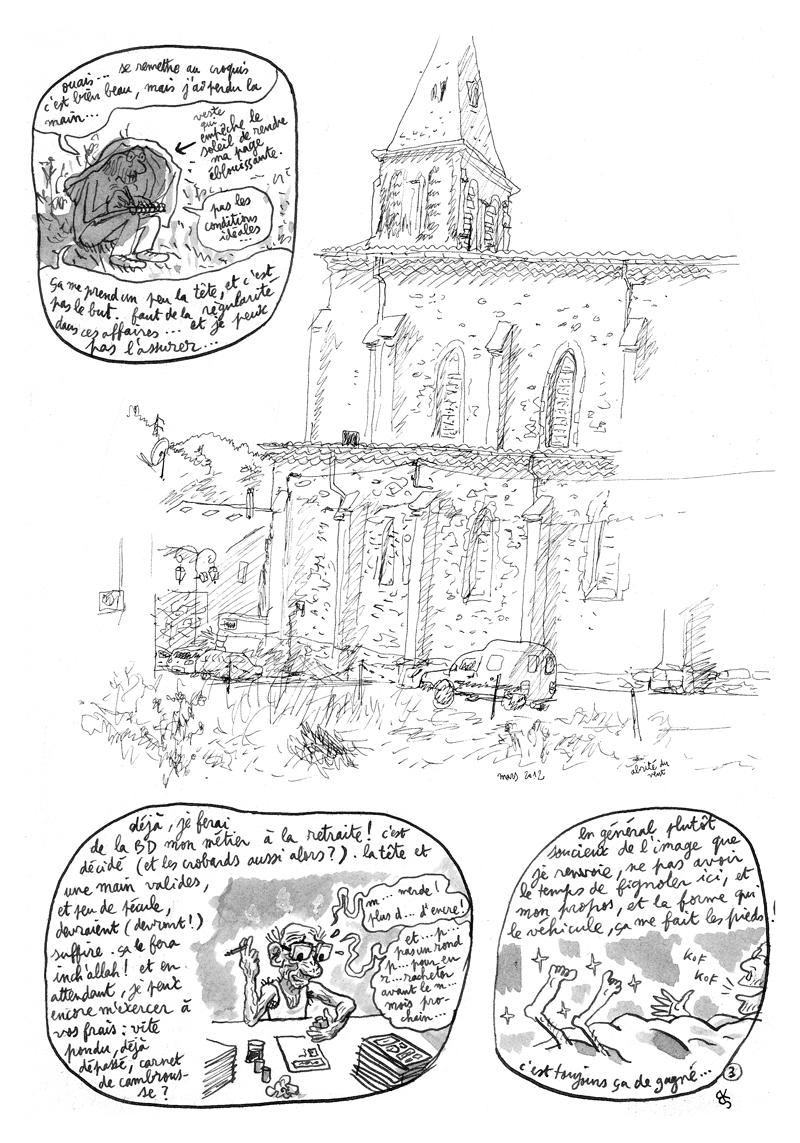 ouais... se remettre au croquis
c'est bien beau, mais j'ai perdu la
main...
veste
qui
empêche le
soleil de rendre
ma page
éblouissante.
pas les
conditions
idéales
...
ça me prend un peu la tête, et c'est
pas le but. faut de la régularité
dans ces affaires... et je peux
pas l'assurer...
mars 2012
abrité du
vent
déjà, je ferai
de la BD mon métier à la retraite! c'est
décidé (et les crobards aussi alors?). la tête et
une main valides,
et peu de pécule,
devraient (devront!)
suffire. ça le fera
inch'allah! et en
attendant, je peux
encore m'exercer à
vos frais: vite
pondu, déjà
dépassé, carnet
de cambrous-
se?
m... merde!
plus d... d'encre!
et... p...
pas un rond
p... pour en
r... racheter
avant le m...
mois pro-
chain...
en général plutôt
soucieux de l'image que
je renvoie, ne pas avoir
le temps de fignoler ici, et
mon propos, et la forme qui
le véhicule, ça me fait les pieds!
KOF
KOF
c'est toujours ça de gagné...
3